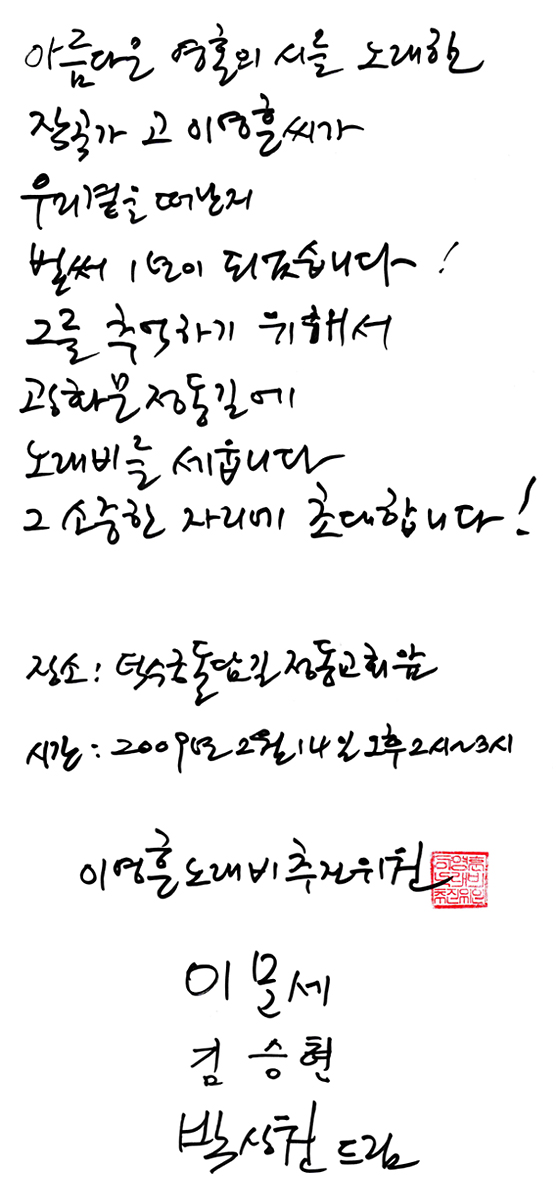 아름다운 영혼의 시를 노래한
작곡가 고 이영훈씨가
우리곁을 떠난지
벌써 1년이 되었습니다!
그를 추억하기 위해서
광화문 정동길에
노래비를 세웁니다
그 소중한 자리에 초대합니다!
장소: 덕수궁돌담길 정동교회앞
시간: 2009년 2월 14일 오후2시~3시
이영훈노래비추진위원
이문세
김승현
박상원 드림